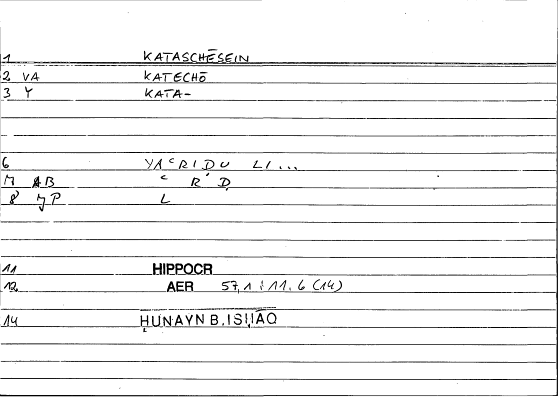 1 KATASCHĒSEIN
2 VA KATECHŌ
3 Y KATA-
6 YAʿRIḌU LI...
7 AB ʿ R Ḍ
8 JP L
11 HIPPOCR
12 AER 57,1 : 11.6 (14)
14 ḤUNAYN B. ISḤĀQ